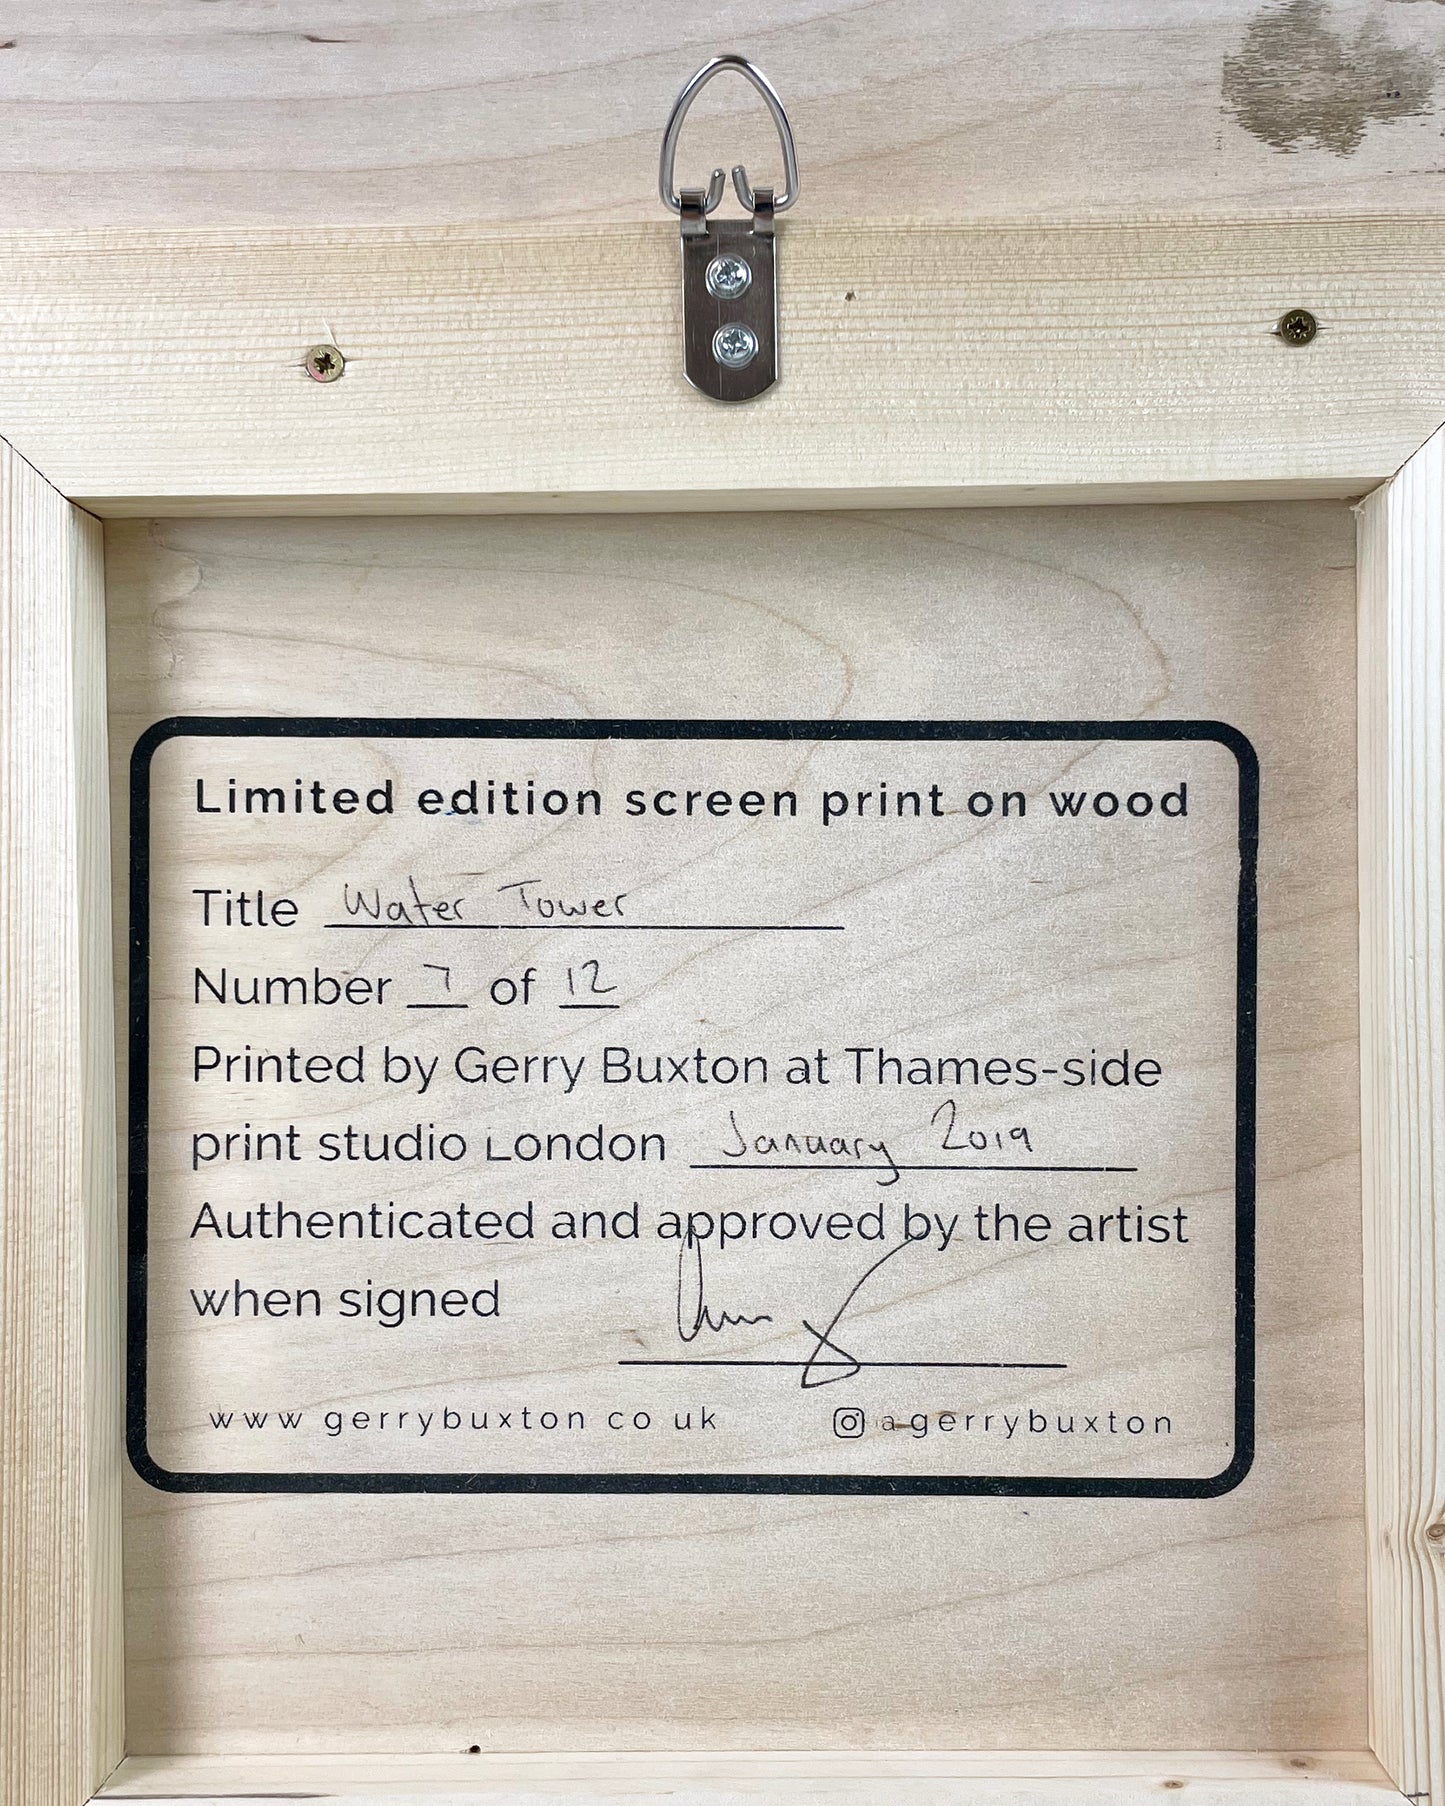 Limited edition screen print on wood
Title Water Tower
Number 7 of 12
Printed by Gerry Buxton at Thames-side
print studio London January 2019
Authenticated and approved by the artist
when signed
www gerrybuxton co uk
agerrybuxton